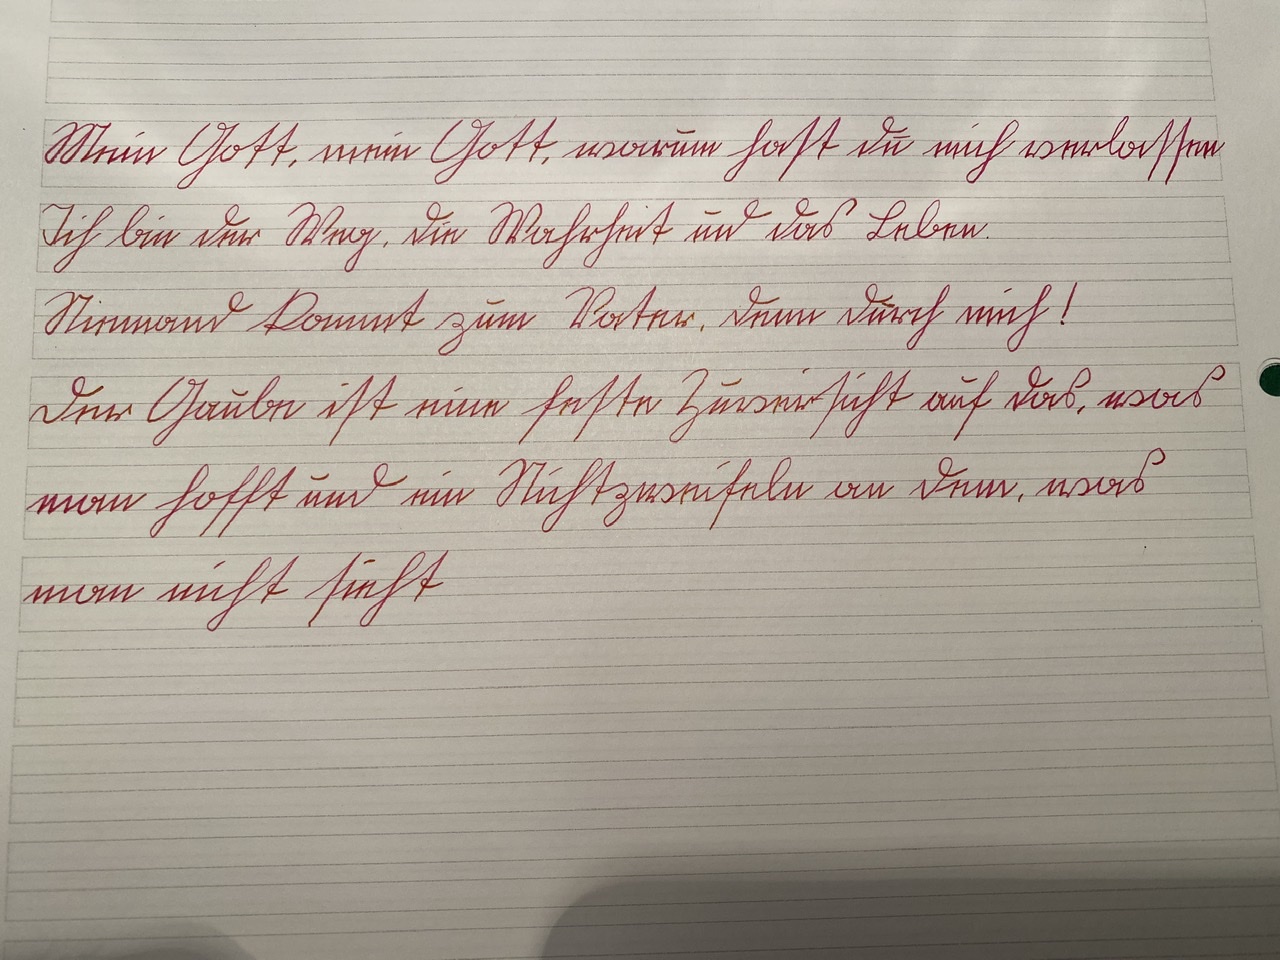 Mein Gott, mein Gott, warum hast du mich verlassen
Ich bin der Weg, die Wahrheit und das Leben.
Niemand kommt zum Vater, denn durch mich!
Der Gaube ist eine feste Zuversicht auf das, was
man hofft und ein Nichtzweifeln an dem, was
man nicht sieht